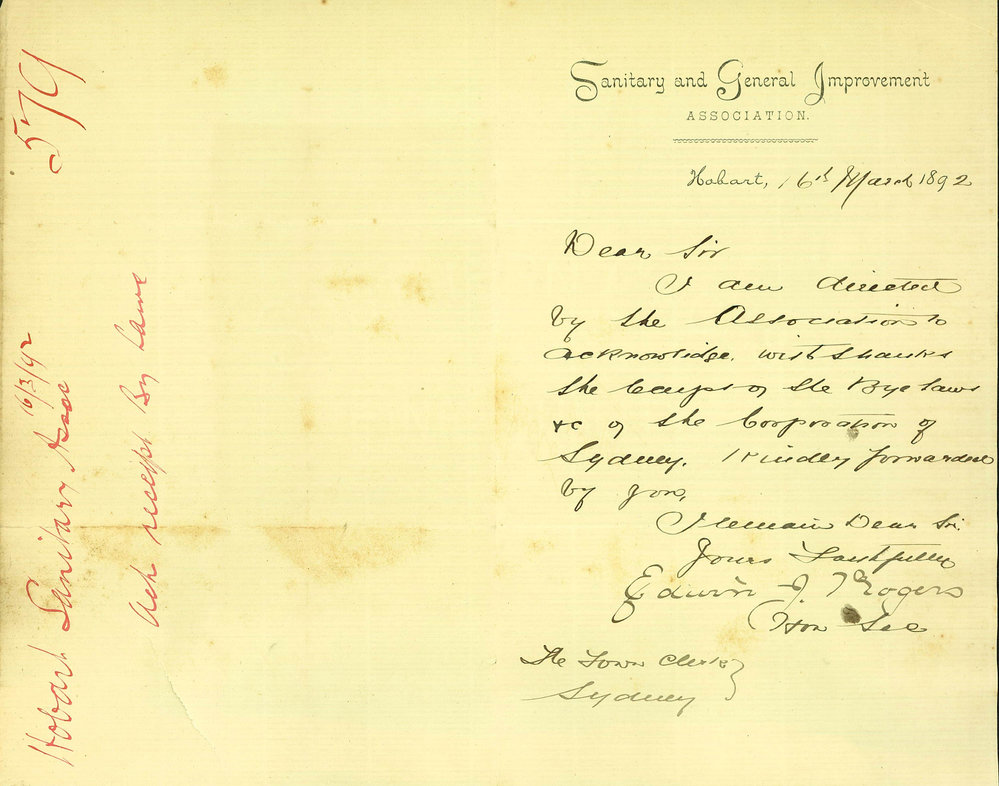 Sanitary and General Improvement
ASSOCIATION.
Hobart, 16th March 1892
Dear Sir
I am directed
by the Association to
acknowlidge. with thanks
the Receipt of the Bye laws
&c of the Corporation of
Sydney. Kindly forwarded
by you,
I Remain Dear Sir.
Yours Faithfully
Edwin J. Rogers
Hon Sec
The Town Clerk
Sydney
579
16/3/92
Hobart Sanitary Assoc
Ack receipt By Laws